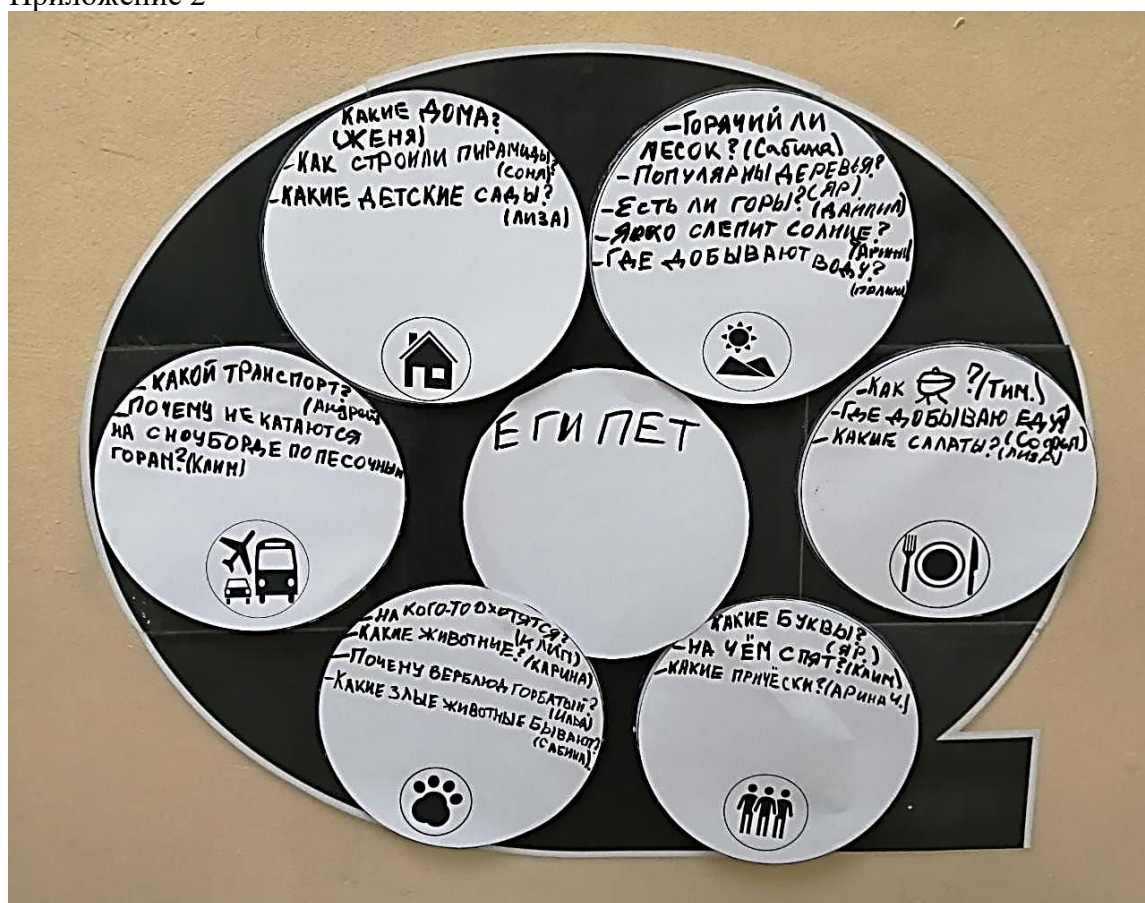 Приложение 2
КАКИЕ ДОМА?
(ЖЕНЯ)
-КАК СТРОИЛИ ПИРАМИДЫ?
(СОНЯ)
-КАКИЕ ДЕТСКИЕ САДЫ?
(ЛИЗА)
-ГОРЯЧИЙ ЛИ
ПЕСОК? (Сабина)
-ПОПУЛЯРНЫ ДЕРЕВЬЯ?
(ЯР)
-ЕСТЬ ЛИ ГОРЫ? (ДАНИИЛ)
-ЯРКО СЛЕПИТ СОЛНЦЕ?
-ГДЕ ДОБЫВАЮТ ВОДУ?
-КАКОЙ ТРАНСПОРТ?
(Андрей)
-ПОЧЕМУ НЕ КАТАЮТСЯ
НА СНОУБОРДЕ ПО ПЕСОЧНЫМ
ГОРАМ? (КЛИМ)
ЕГИПЕТ
-КАК ? (ТИМ.)
-ГДЕ ДОБЫВАЮ ЕДУ?
-КАКИЕ САЛАТЫ? (ЛИЗА)
-НА КОГО-ТО ОХОТЯТСЯ?
(КЛИМ)
-КАКИЕ ЖИВОТНЫЕ? (КАРИНА)
-ПОЧЕМУ ВЕРБЛЮД ГОРБАТЫЙ?
(ИЛЬЯ)
-КАКИЕ ЗЛЫЕ ЖИВОТНЫЕ БЫВАЮТ?
(САБИНА)
КАКИЕ БУКВЫ?
(ЯР.)
-НА ЧЁМ СПЯТ? (КЛИМ)
-КАКИЕ ПРИЧЁСКИ? (АРИНА Ч.)